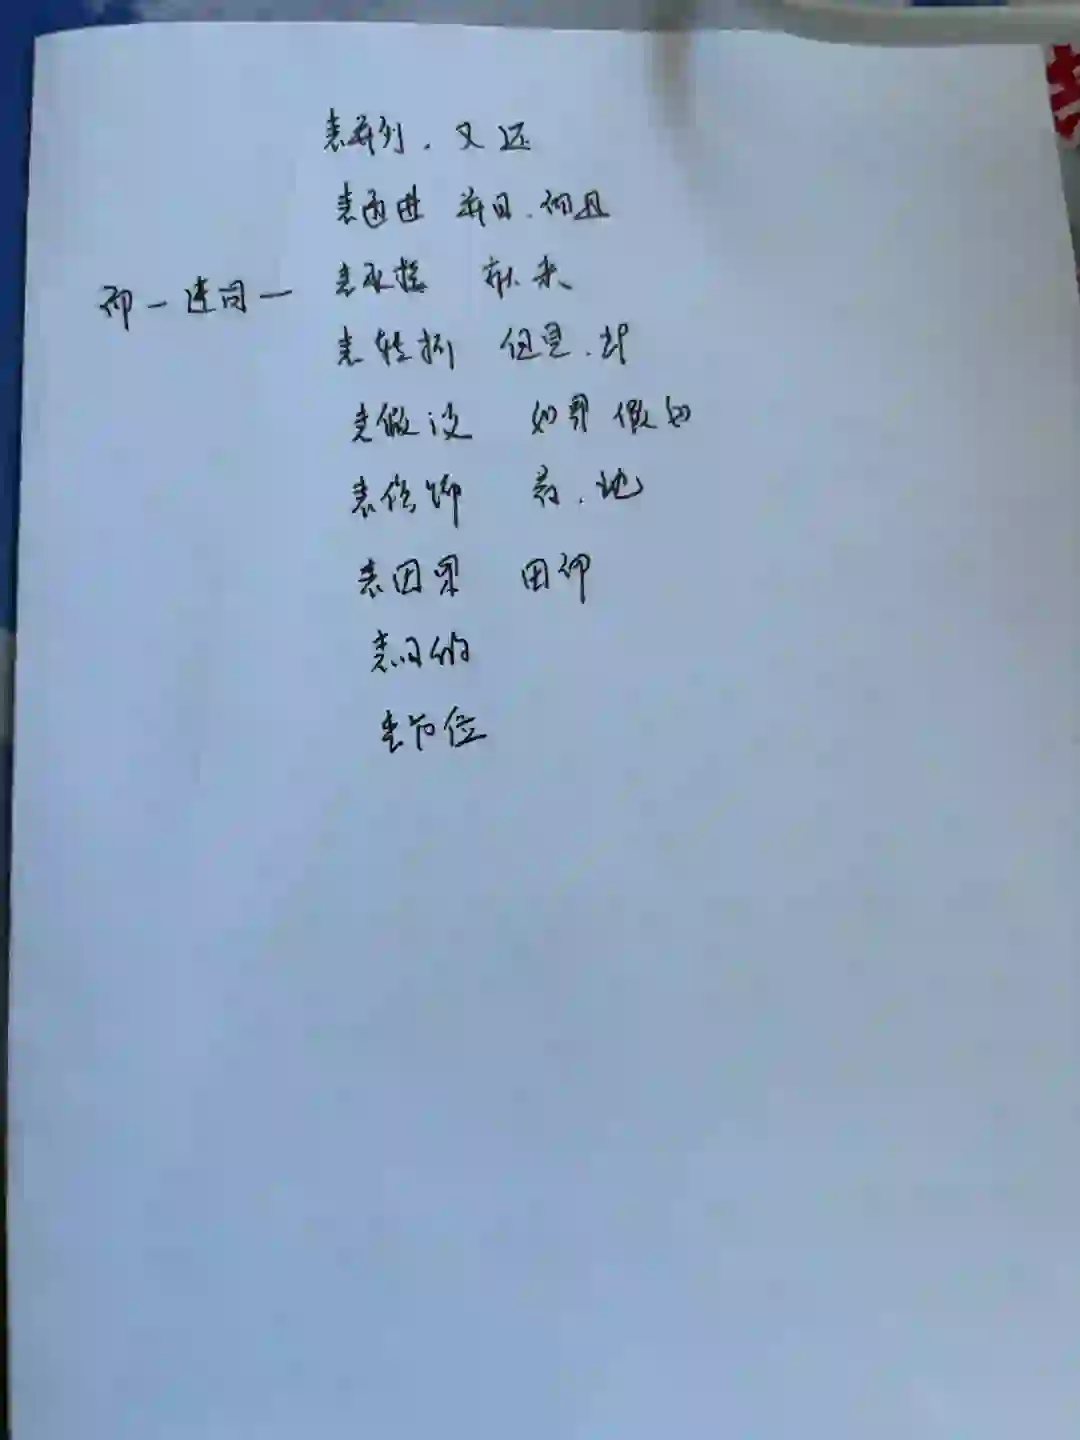 表并列.又 还
表递进 并且.而且
而一连词一 表承接 就.来
表转折 但是.却
表假设 如果 假如
表修饰 着.地
表因果 因而
表目的